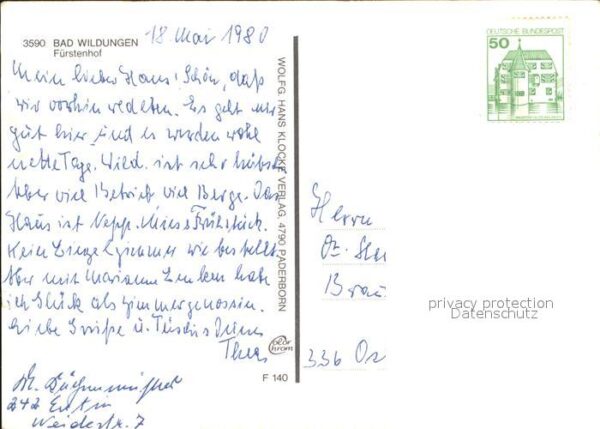 18 Mai 1980
3590 BAD WILDUNGEN
Fürstenhof
Mein lieber Hans! Schön, daß
wir vorhin redeten. Es geht mir
gut hier und es werden wohl
nette Tage. Wild. ist sehr hübsch
Aber viel Betrieb viel Berge. Das
Haus ist Nepp. Mieses Frühstück.
Kein Einzelzimmer wie bestellt.
Aber mit Marianne habe
ich Glück als Zimmergenossin.
Liebe Grüße u. Deine
Thea
242 Eutin
Weidestr. 7
WOLFG. HANS KLOCKE VERLAG, 4790 PADERBORN
color
chrom
F 140
50
DEUTSCHE BUNDESPOST
Herrn
Brau
336
privacy protection
Datenschutz